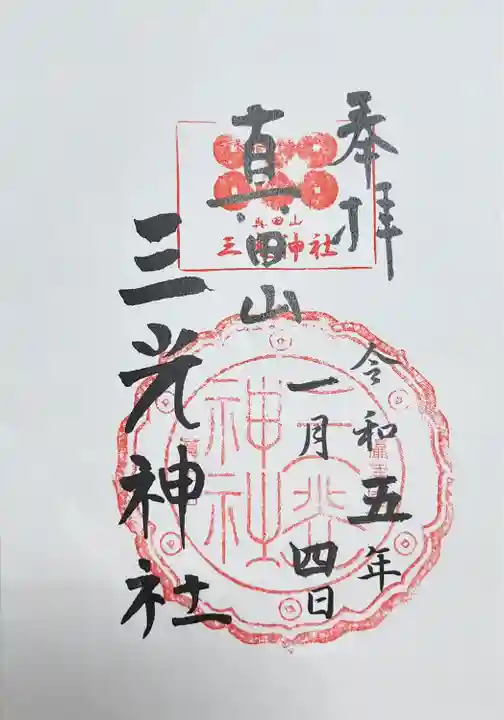 奉拝
令和五年
一月四日
真田山
三光神社
真田山
三光神社
三光神社